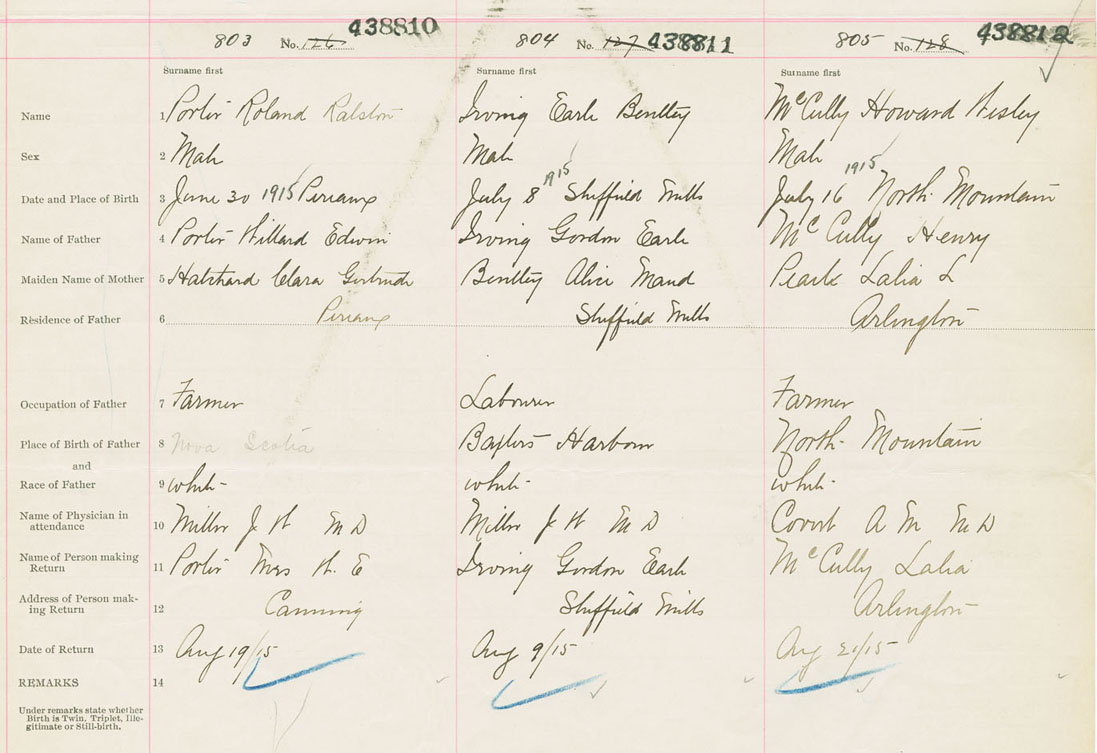 803 No. 126 438810 804 No. 127 438811 805 No. 128 438812
Surname first Surname first Surname first
Name 1 Porter Roland Ralston Irving Earle Bentley McCully Howard Wesley
Sex 2 Male Male Male
Date and Place of Birth 3 June 30 1915 Pereaux July 8 1915 Sheffield Mills July 16 1915 North Mountain
Name of Father 4 Porter Willard Edwin Irving Gordon Earle McCully Henry
Maiden Name of Mother 5 Clara Gertrude Bentley Alice Maud Lalia L
Residence of Father 6 Pereaux Sheffield Mills Arlington
Occupation of Father 7 Farmer Labourer Farmer
Place of Birth of Father 8 Nova Scotia Baxters Harbour North Mountain
and
Race of Father 9 white white white
Name of Physician in
attendance 10 Miller J W M D Miller J W M D Covert A M M D
Name of Person making
Return 11 Porter Mrs W. E Irving Gordon Earle McCully Lalia
Address of Person mak-
ing Return 12 Canning Sheffield Mills Arlington
Date of Return 13 Aug 19/15 Aug 9/15 Aug /15
REMARKS 14
Under remarks state whether
Birth is Twin, Triplet, Ille-
gitimate or Still-birth.